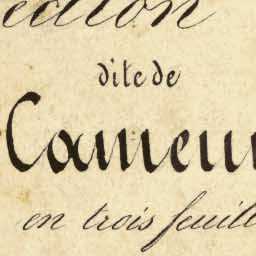 ection
dite de
Cameun
en trois feuill